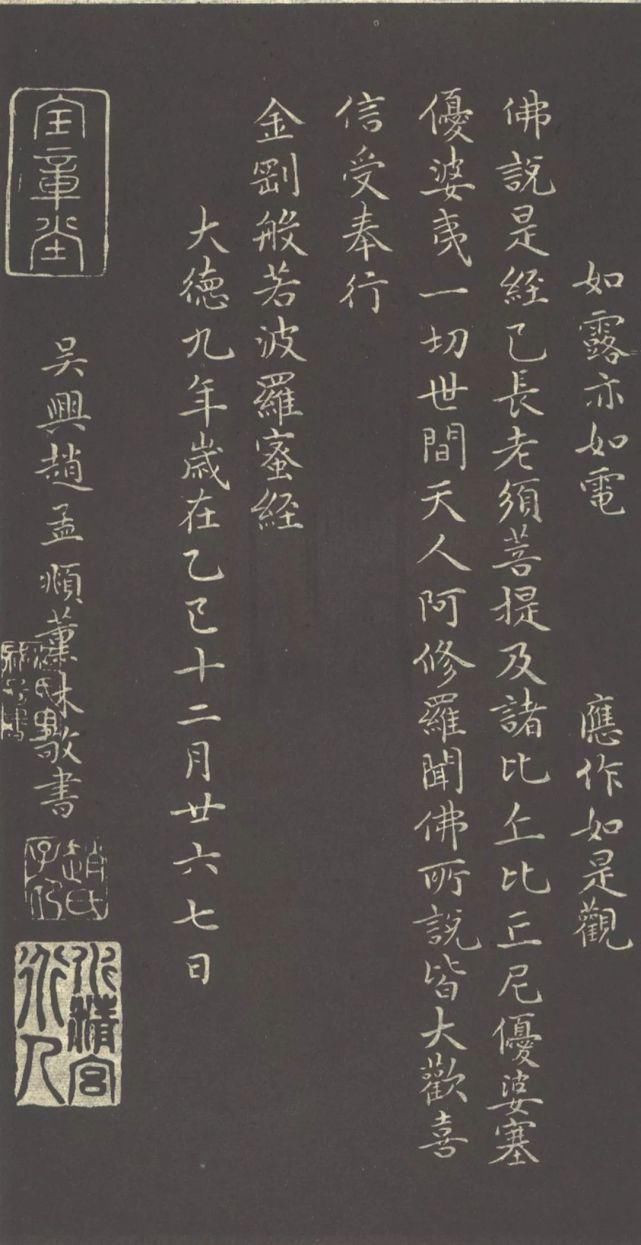 如露亦如電 應作如是觀
佛說是經已長老須菩提及諸比丘比丘尼優婆塞
優婆夷一切世間天人阿修羅聞佛所說皆大歡喜
信受奉行
金剛般若波羅蜜経
大德九年歲在乙巳十二月廿六七日
吳興趙孟頫薰沐敬書
趙氏子昂
水精宮道人